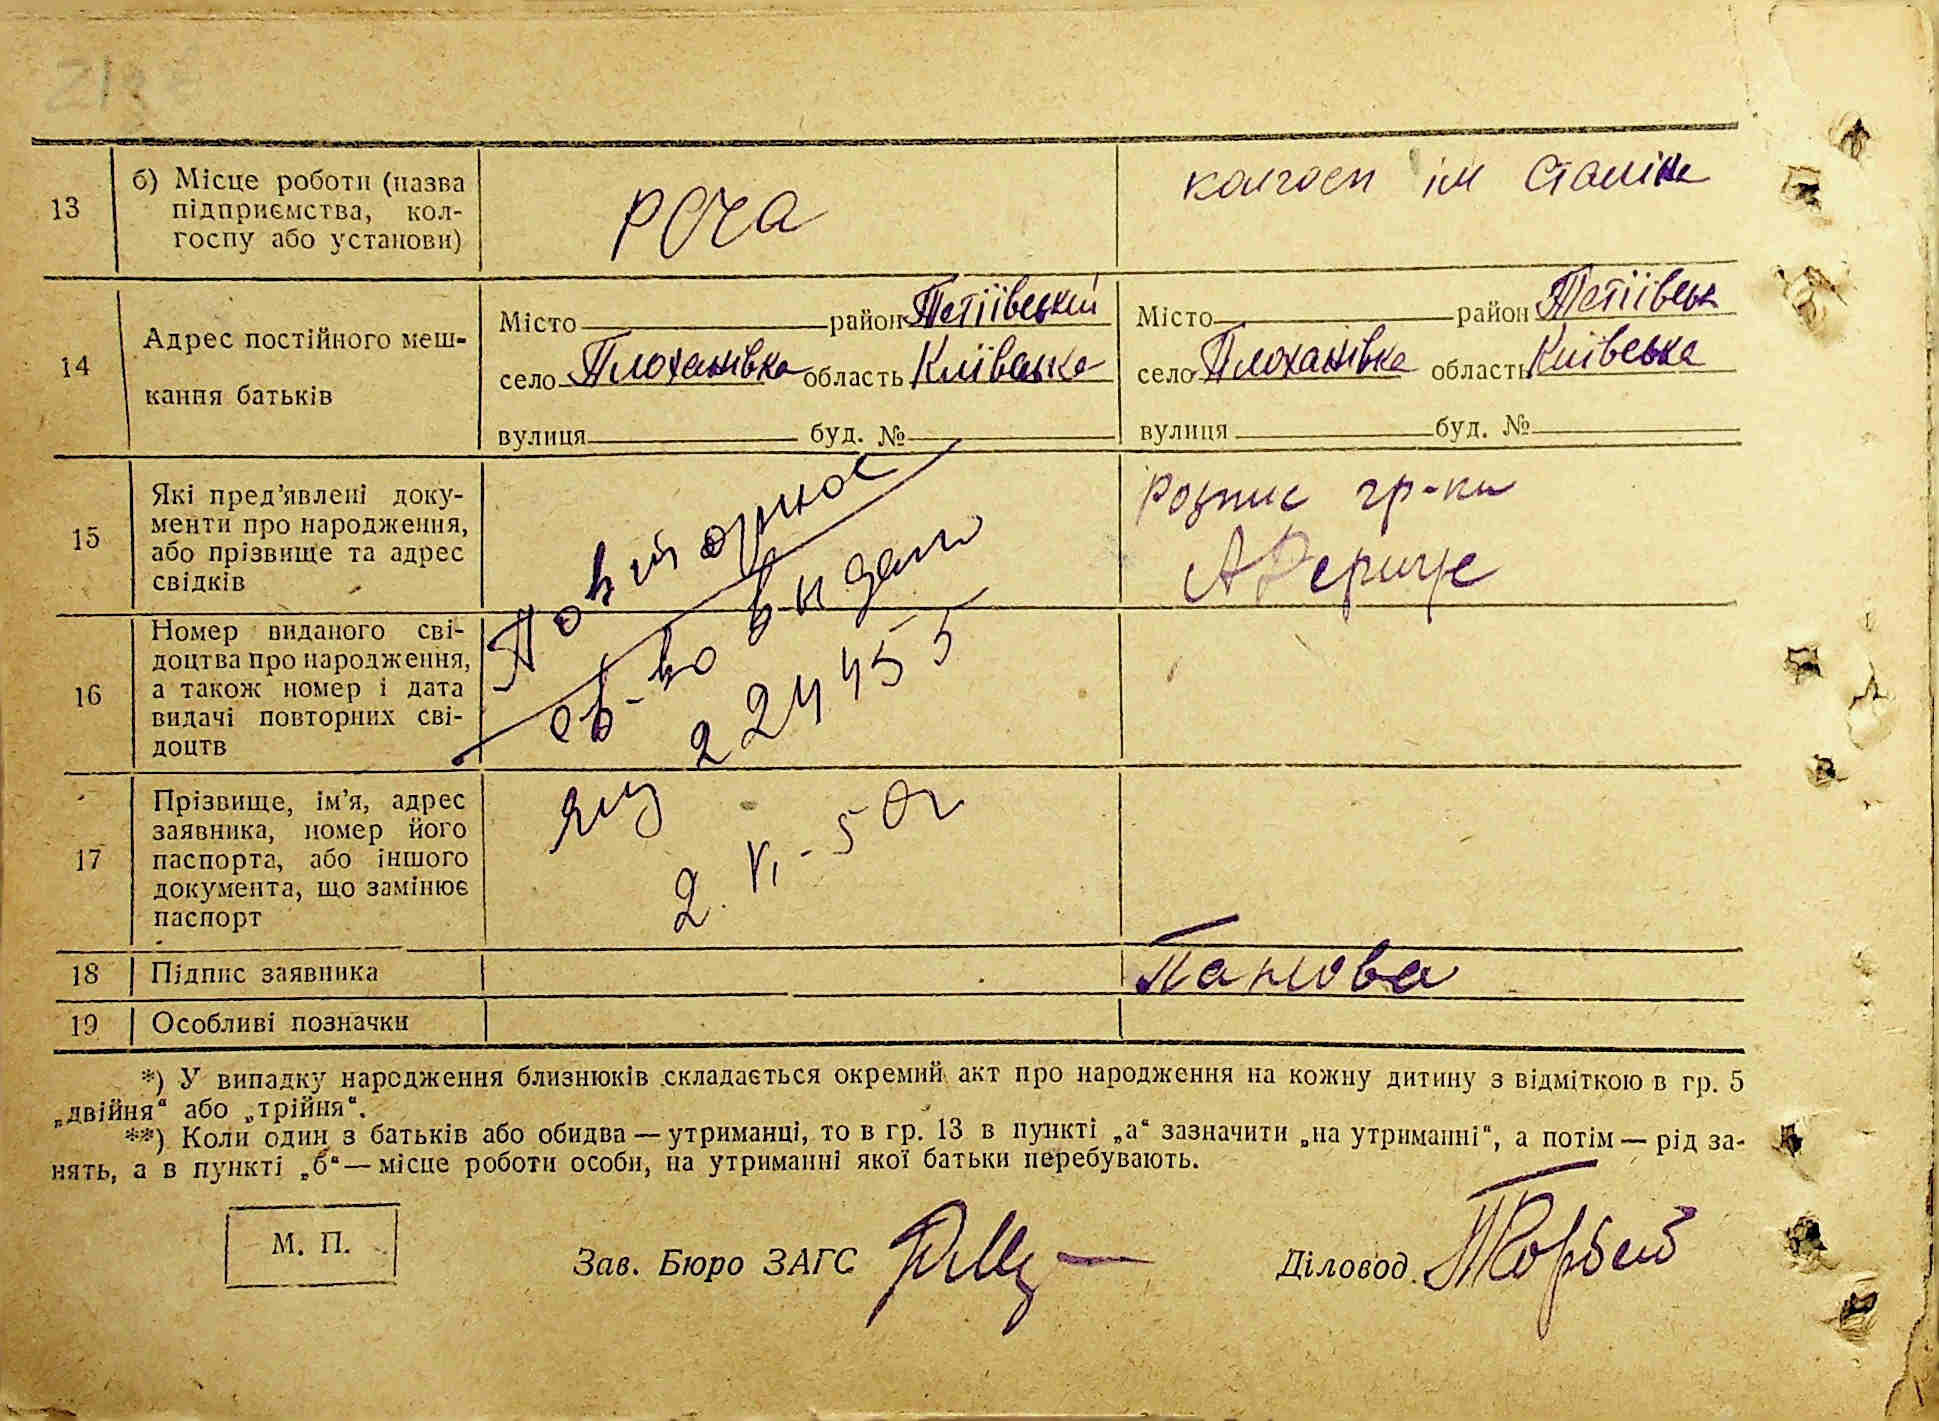 13
б) Місце роботи (назва
підприємства, кол-
госпу або установи)
РСЧА
колгосп ім Сталіна
14
Адрес постійного меш-
кання батьків
Місто район Тетіївський
село Плоханівка область Київська
вулиця буд. №
Місто район Тетіївськ
село Плоханівка область Київська
вулиця буд. №
15
Які пред’явлені доку-
менти про народження,
або прізвище та адрес
свідків
Розпис гр-ки
16
Номер виданого сві-
доцтва про народження,
а також номер і дата
видачі повторних сві-
доцтв
Повторное
св-во выдано
224455
17
Прізвище, ім’я, адрес
заявника, номер його
паспорта, або іншого
документа, що замінює
паспорт
2. VI - 50г
18
Підпис заявника
Панова
19
Особливі позначки
*) У випадку народження близнюків складається окремий акт про народження на кожну дитину з відміткою в гр. 5
„двійня“ або „трійня“.
**) Коли один з батьків або обидва — утриманці, то в гр. 13 в пункті „а“ зазначити „на утриманні“, а потім — рід за-
нять, а в пункті „б“ — місце роботи особи, на утриманні якої батьки перебувають.
М. П.
Зав. Бюро ЗАГС
Діловод